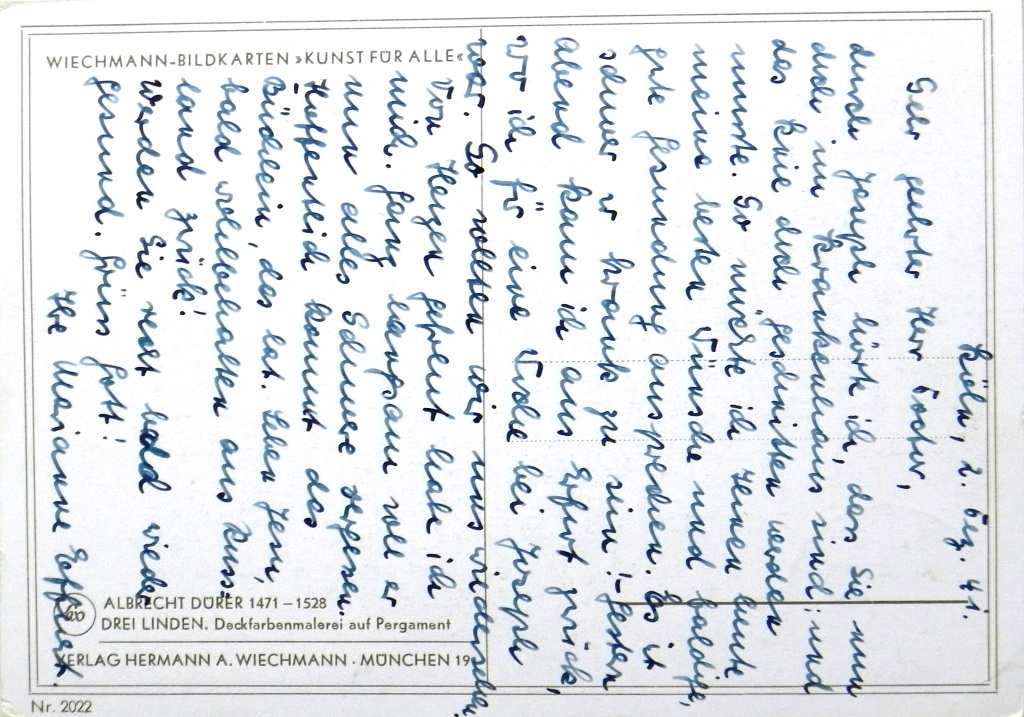 WIECHMANN-BILDKARTEN »KUNST FÜR ALLE«
Köln, 2. Dez. 41.
Sehr geehrter Herr Doctor,
durch Joseph hörte ich, das Sie nun
auch im Krankenhaus sind; und
das Knie auch geschnitten werden
musste. So möchte ich Ihnen heute
meine besten Wünsche und baldige,
gute Gesundung aussprechen. Es ist
schwer so krank zu sein! - Gestern
Abend kam ich aus Erfurt zurück,
wo ich für eine Woche bei Joseph
war. So sollten wir uns wiedersehen.
Von Herzen gefreut habe ich
mich. Ganz langsam soll er
nun alles Schwere vergessen.
Hoffentlich kommt das
Büchlein, das lat. Leben Jesu,
bald wohlbehalten aus Russ-
land zurück!
Werden Sie recht bald wieder
gesund. Grüss Gott!
Ihre Marianne
ALBRECHT DÜRER 1471 – 1528
DREI LINDEN. Deckfarbenmalerei auf Pergament
VERLAG HERMANN A. WIECHMANN · MÜNCHEN 19
Nr. 2022